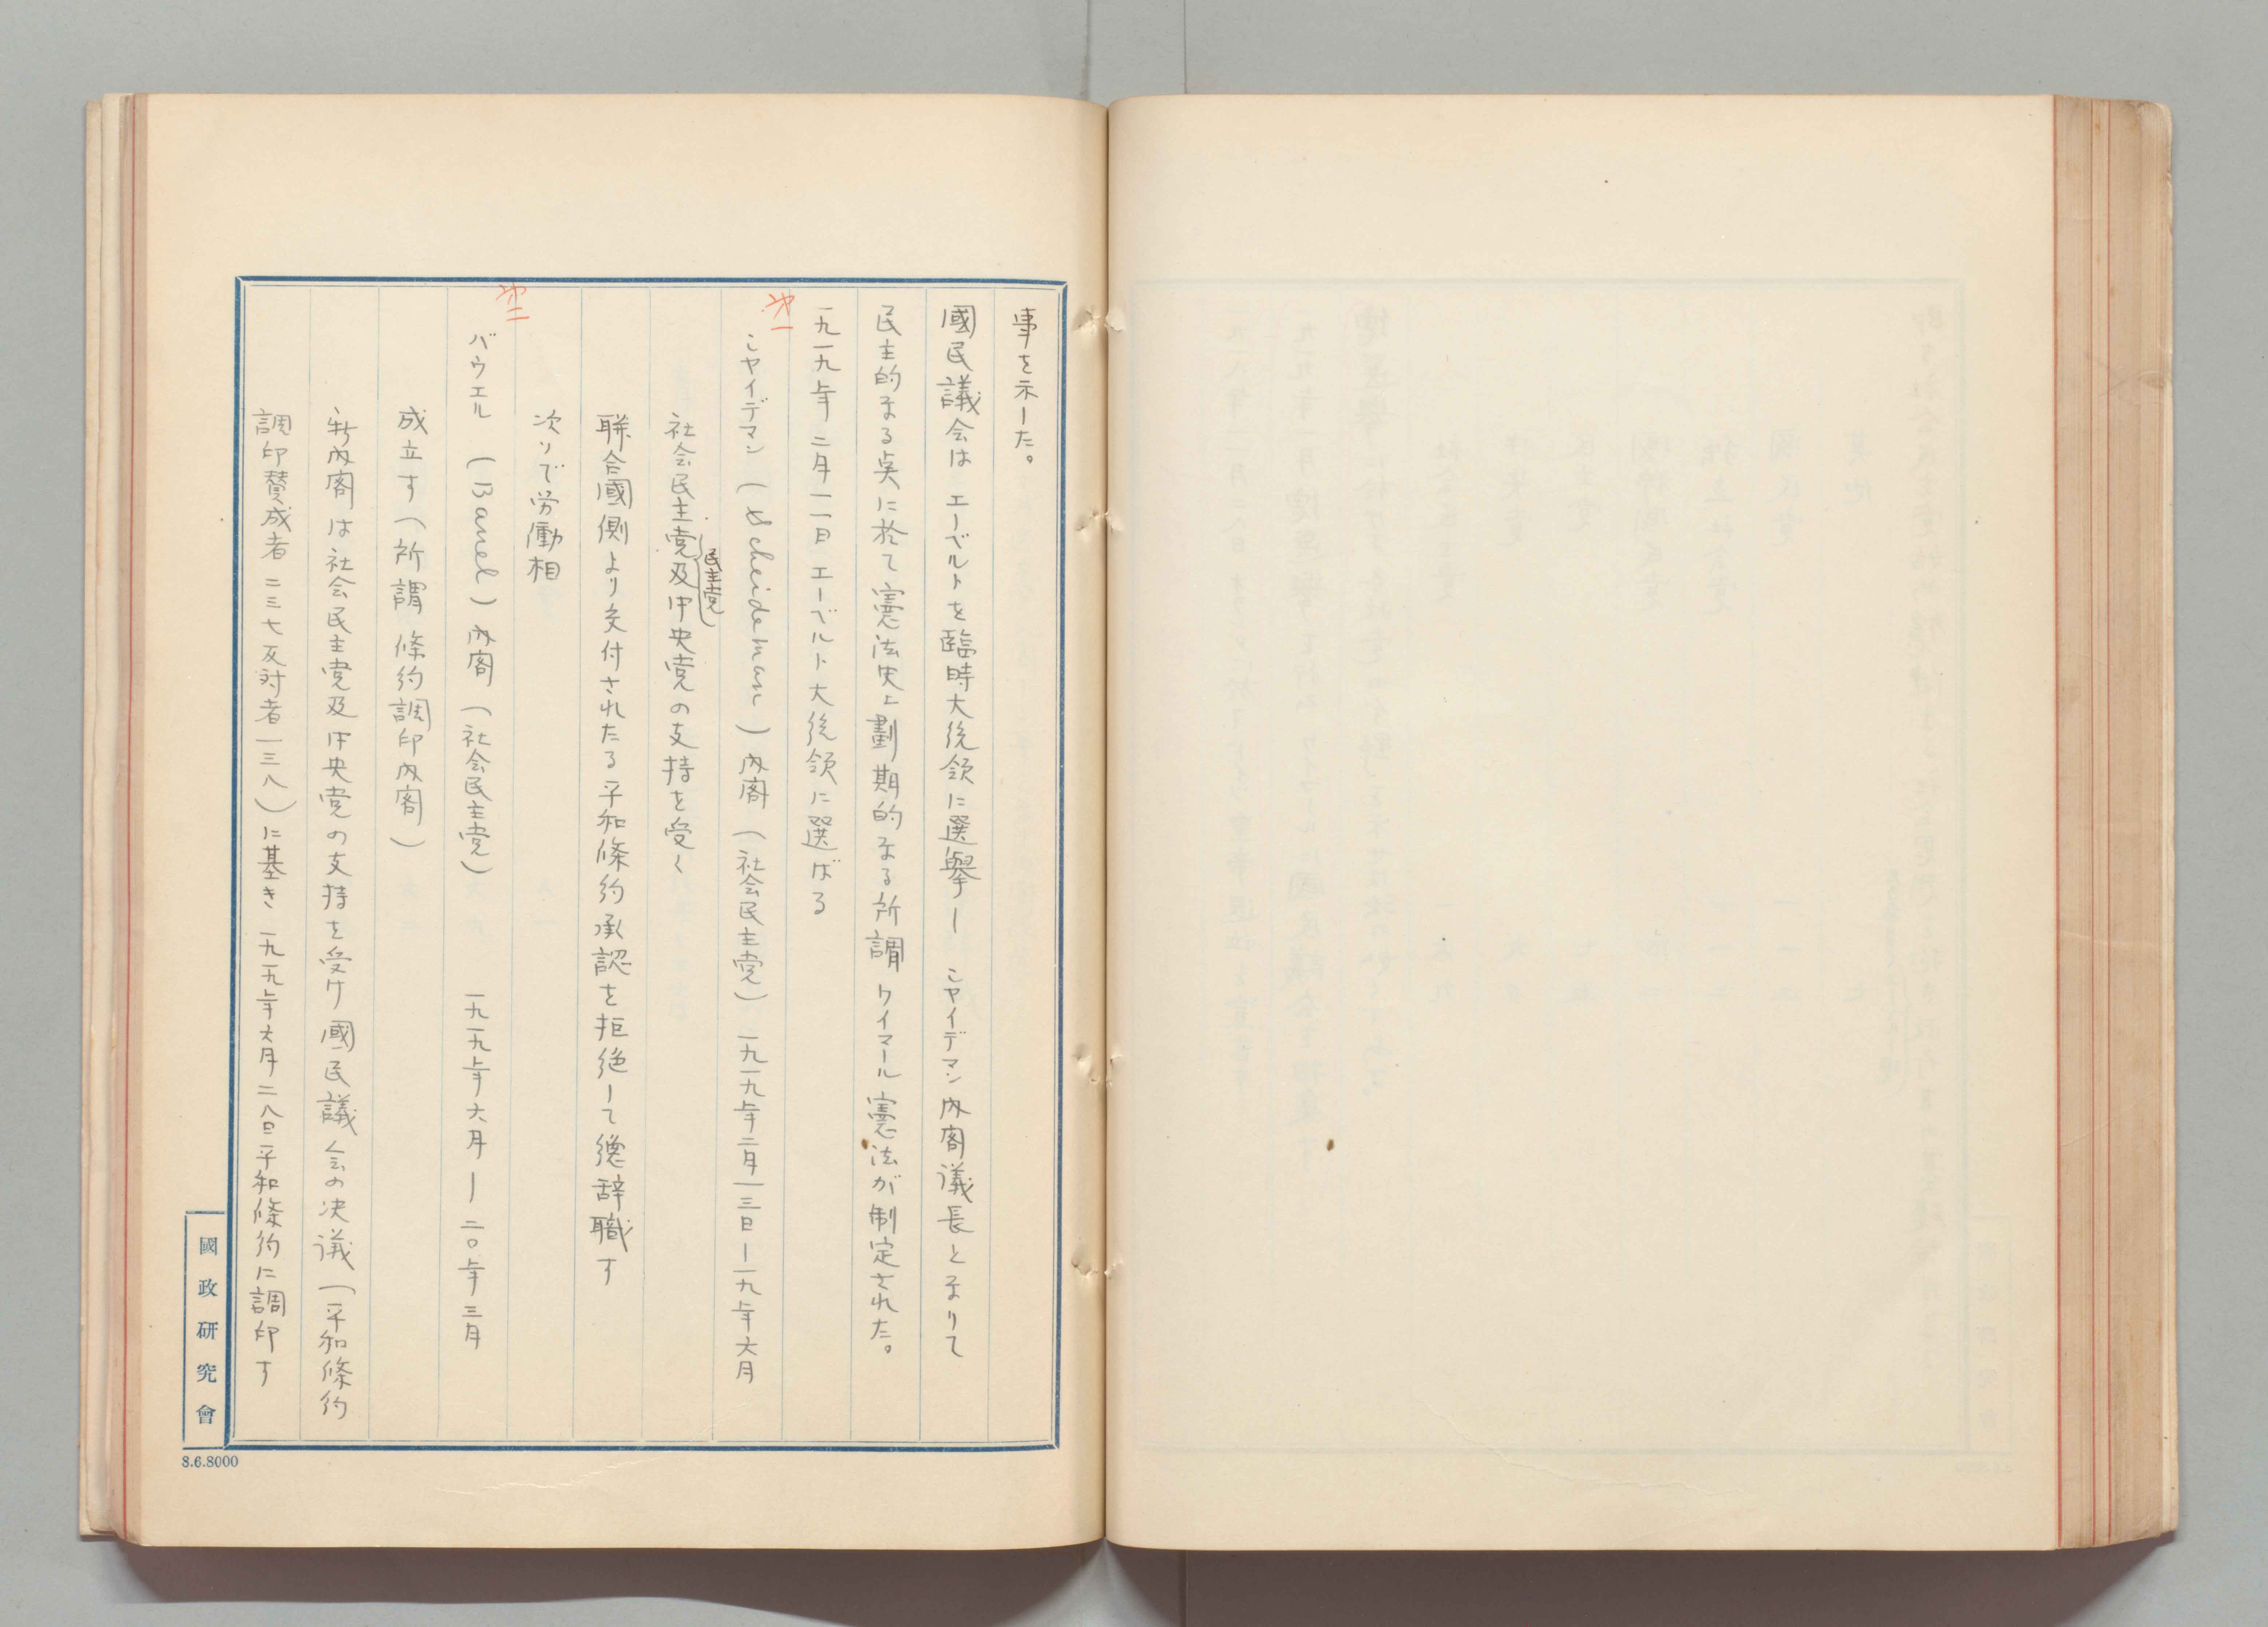 事を示した。
國民議会はエーベルトを臨時大統領に選擧し シャイデマン内閣議長となりて
民主的なる点に於て憲法史上劃期的なる所謂ワイマール憲法が制定された。
一九一九年二月一一日エーベルト大統領に選ばる
第一
シャイデマン（Scheidemann）内閣（社会民主党）一九一九年二月一三日—一九年六月
民主党
社会民主党及中央党の支持を受く
聯合國側より交付されたる平和條約承認を拒絶して總辞職す
次いで労働相
第二
バウエル（Bauer）内閣（社会民主党） 一九一九年六月—二〇年三月
成立す（所謂條約調印内閣）
新内閣は社会民主党及中央党の支持を受け國民議会の決議（平和條約
調印賛成者二三七反対者一三八）に基き一九一九年六月二八日平和條約に調印す
國政研究會
8.6.8000